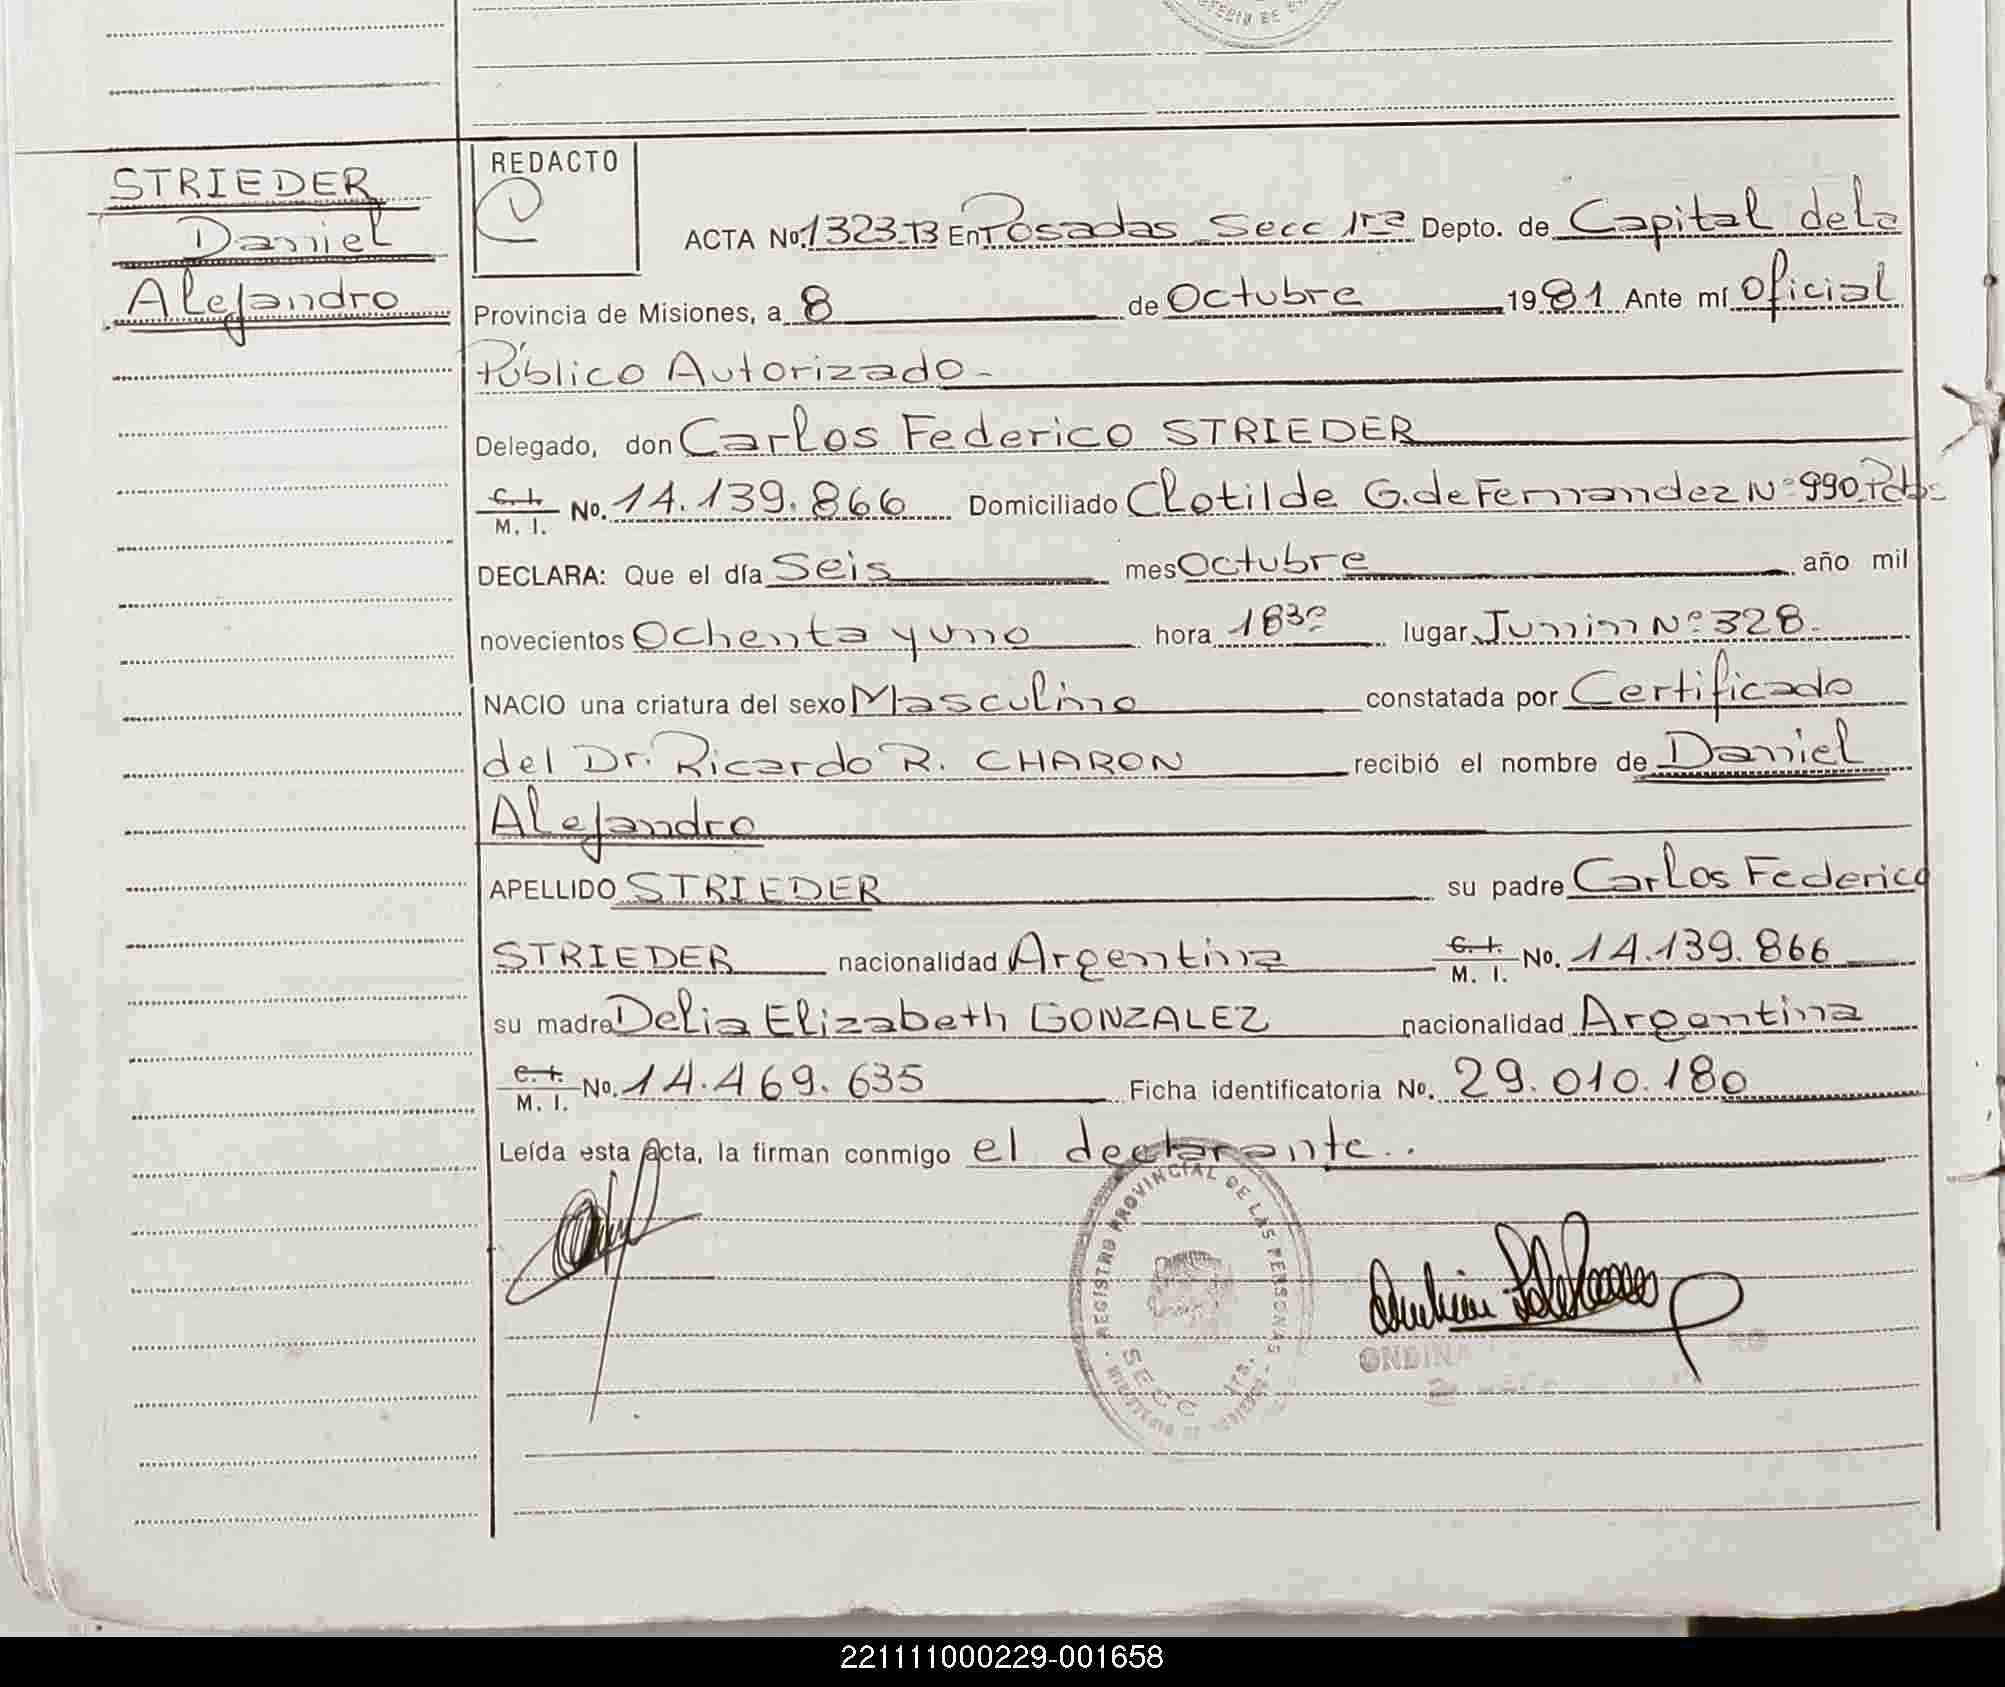 STRIEDER
Daniel
Alejandro
REDACTO
ACTA No. 1323.TB En Posadas Secc 1ra Depto. de Capital de la
Provincia de Misiones, a 8 de Octubre 1981 Ante mí Oficial
Público Autorizado
Delegado, don Carlos Federico STRIEDER
C. I.
M. I. No. 14.139.866 Domiciliado Clotilde G. de Fernandez Nº 990 Pdas
DECLARA: Que el día Seis mes Octubre año mil
novecientos Ochenta y uno hora 18³⁰ lugar Junin Nº 328.
NACIO una criatura del sexo Masculino constatada por Certificado
del Dr. Ricardo R. CHARON recibió el nombre de Daniel
Alejandro
APELLIDO STRIEDER su padre Carlos Federico
STRIEDER nacionalidad Argentina C. I.
M. I. No. 14.139.866
su madre Delia Elizabeth GONZALEZ nacionalidad Argentina
C. I.
M. I. No. 14.469.635 Ficha identificatoria No. 29.010.180
Leída esta acta, la firman conmigo el declarante..
REGISTRO PROVINCIAL DE LAS PERSONAS
SECC 1ra.
ONDINA
221111000229-001658